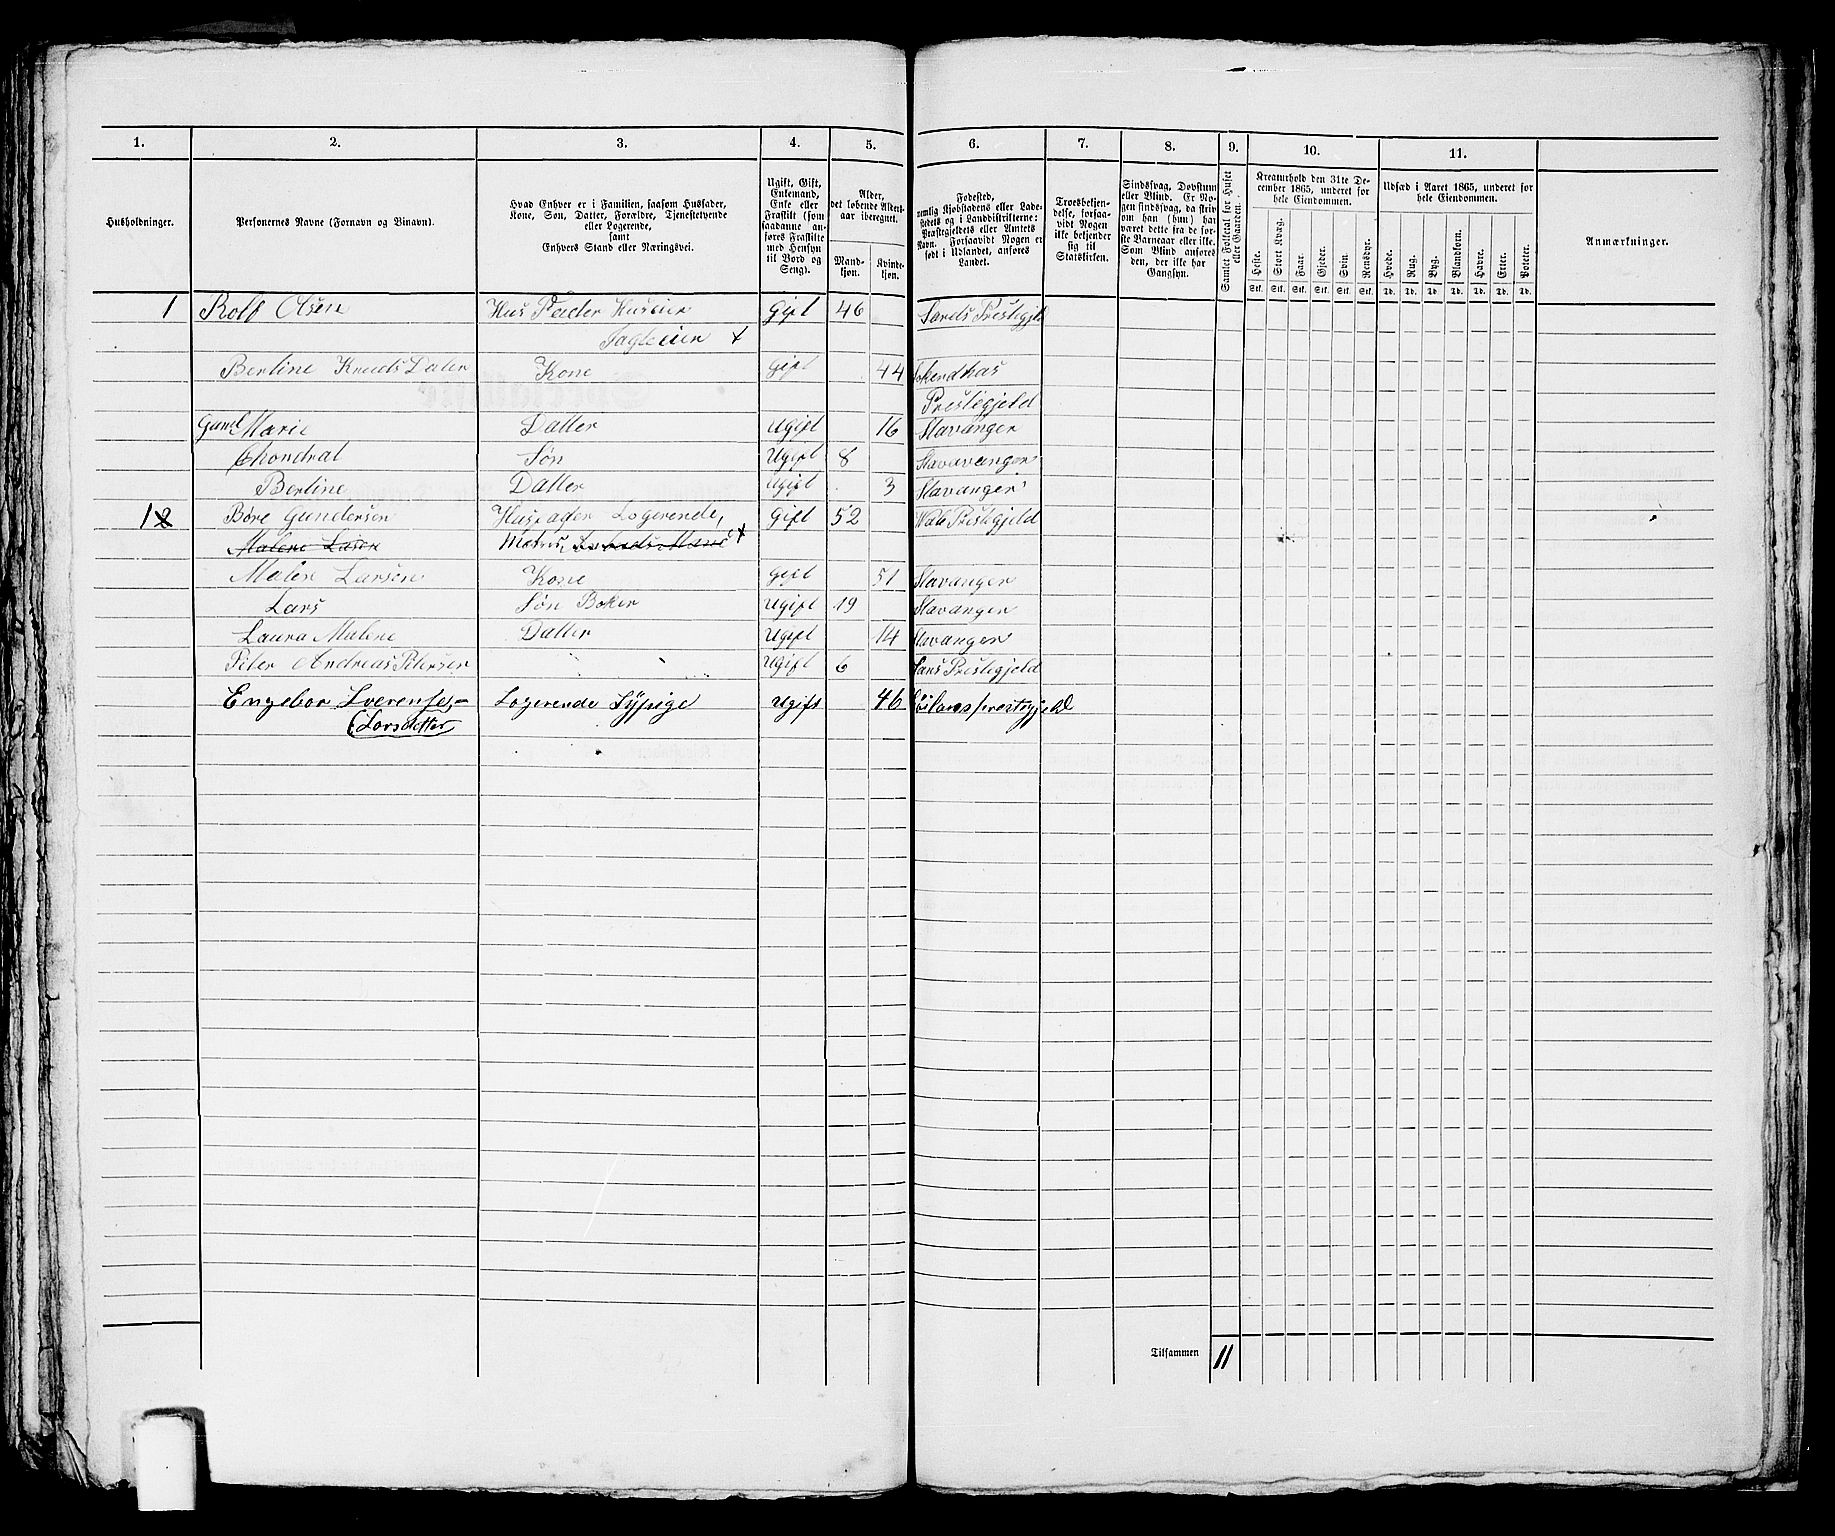 1. 2. 3. 4. 5. 6. 7. 8. 9. 10. 11.
Husholdninger.
Personernes Navne (Fornavn og Binavn).
Hvad Enhver er i Familien, saasom Husfader,
Kone, Søn, Datter, Forældre, Tjenestetyende
eller Logerende,
samt
Enhvers Stand eller Næringsvei.
Ugift, Gift,
Enkemand,
Enke eller
Fraskilt (som
saadanne an-
føres Fraskilte
med Hensyn
til Bord og
Seng).
Alder,
det løbende Alders-
aar iberegnet.
Mand-
kjøn.
Kvinde-
kjøn.
Fødested,
nemlig Kjøbstadens eller Lade-
stedets og i Landdistrikterne:
Præstegjeldets eller Amtets
Navn. Forsaavidt Nogen er
født i Udlandet, anføres
Landet.
Troesbekjen-
delse, forsaa-
vidt Nogen
ikke bekjender
sig til
Statskirken.
Sindssvag, Døvstum
eller Blind. Er No-
gen sindssvag, da skriv
om han (hun) har
været dette fra de før-
ste Barneaar eller ikke.
Som Blind anføres
den, der ikke har
Gangsyn.
Samlet Folketal for Huset
eller Gaarden.
Kreaturhold den 31te De-
cember 1865, underet for
hele Eiendommen.
Heste. Stort Kvæg. Faar. Gjeder. Svin. Rensdyr.
Stk. Stk. Stk. Stk. Stk. Stk.
Udsæd i Aaret 1865, underet for
hele Eiendommen.
Hvede. Rug. Byg. Blandkorn. Havre. Erter. Poteter.
Td. Td. Td. Td. Td. Td. Td.
Anmærkninger.
1 Rolf Olsen Hus Fader Huseier Gift 46 Prestegjeld
x
Berline Knuds Dater Kone Gift 44
Prestegjeld
Gunil Marie Datter Ugift 16 Stavanger
Søn Ugift 8 Stavavanger
Berline Datter Ugift 3 Stavanger
12 Børe Gundersen Husfader Logerende, Gift 52 Prestegjeld
Malene Larsen x
Malen Larsen Kone Gift 51 Stavanger
Lars Søn Boker Ugift 19 Stavanger
Laura Malene Datter Ugift 14 Stavanger
Peter Andreas Petersen Ugift 6 Prestegjeld
Engebor Logerende Sypige Ugift 46
(Larsdatter
Tilsammen 11